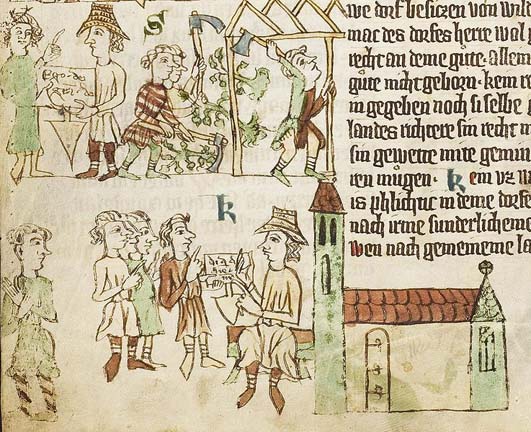 S
Ego dei
K
we dorf besiczen von wild
mac des dorfes herre wol
recht an deme gute · allein
gute nicht geborn · kein re
in gegeben noch si selbe
landes richtere sin recht
sin gewette mite gemin
ren mugen · K ein vz w
is phlichtic in deme dorfe
nach irme sunderlicheme
wen nach gemeineme la